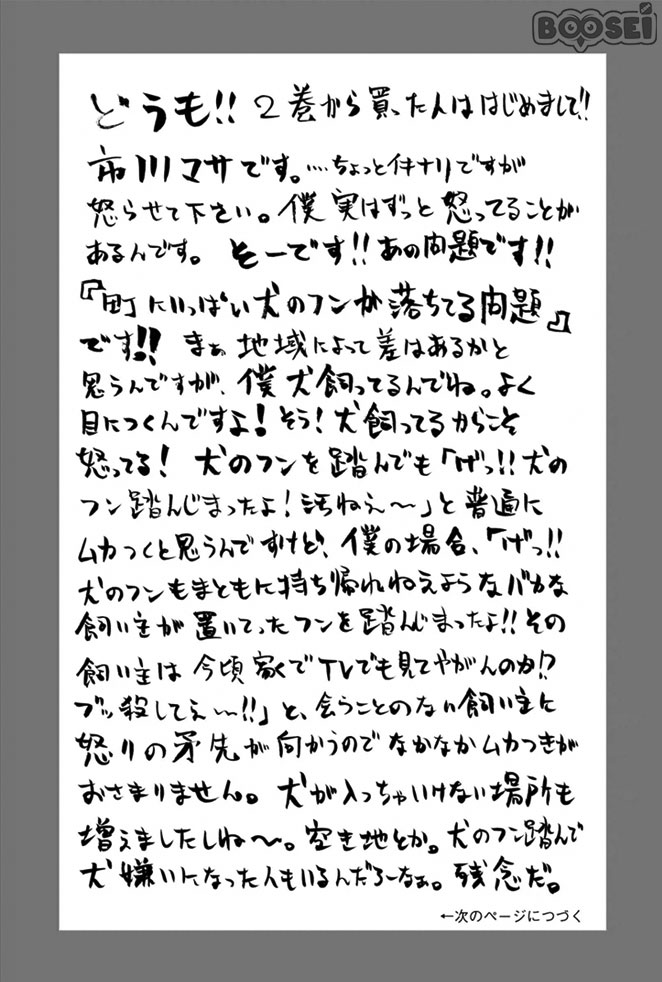 BOOSEI
どうも!! 2巻から買った人ははじめまして!!
市川マサです。‥‥ちょっとイキナリですが
怒らせて下さい。僕実はずっと怒ってることが
あるんです。 そーです!!あの問題です!!
『町にいっぱい犬のフンが落ちてる問題』
です!! まぁ地域によって差はあるかと
思うんですが、僕犬飼ってるんでね。よく
目につくんですよ!そう!犬飼ってるからこそ
怒ってる! 犬のフンを踏んでも「げっ!!犬の
フン踏んじまったよ!汚ねえ〜」と普通に
ムカつくと思うんですけど、僕の場合、「げっ!!
犬のフンもまともに持ち帰れねえようなバカな
飼い主が置いてったフンを踏んじまったよ!!その
飼い主は今頃家でTVでも見てやがんのか!?
ブッ殺してえ〜!!」と、会うことのない飼い主に
怒りの矛先が向かうのでなかなかムカつきが
おさまりません。犬が入っちゃいけない場所も
増えましたしね〜。空き地とか。犬のフン踏んで
犬嫌いになった人もいるんだろーなぁ。残念だ。
←次のページにつづく